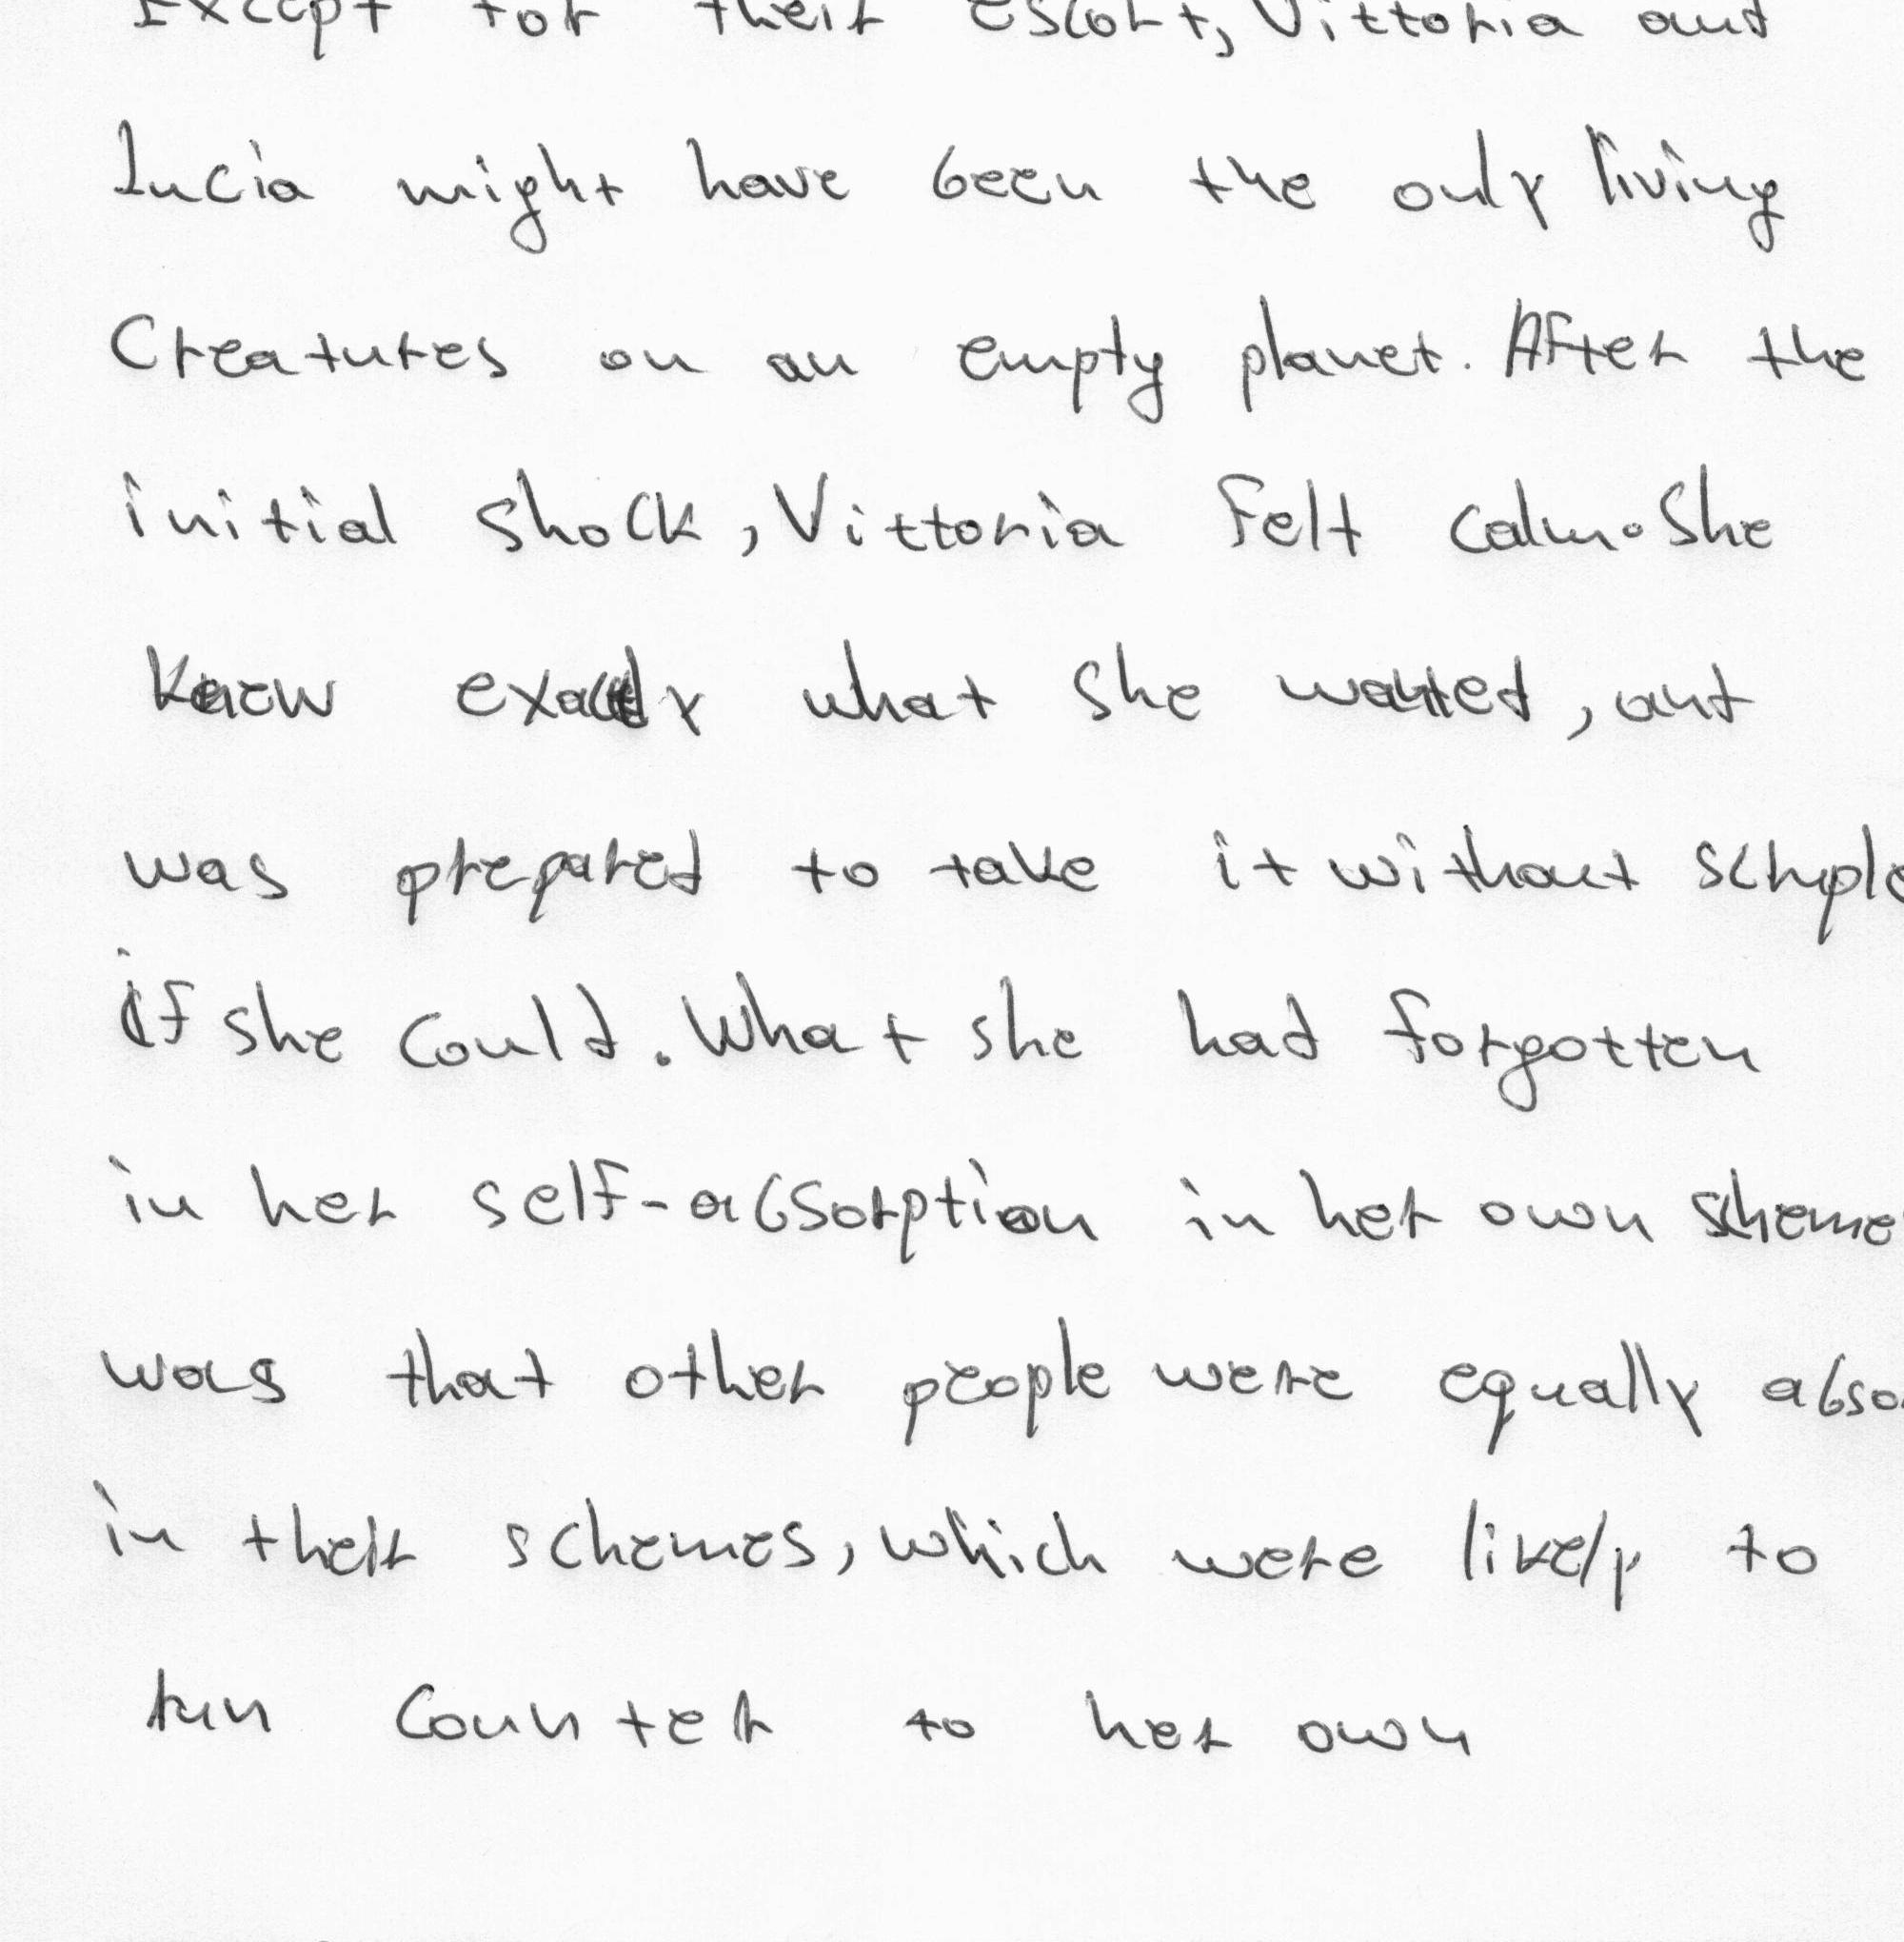 Except for their escort, Vittoria and
Lucia might have been the only living
Creatures on an empty planet. After the
initial shock, Vittoria felt calm. She
knew exactly what she wanted, and
was prepared to take it without scruple
if she could. What she had forgotten
in her self-absorption in her own scheme
was that other people were equally abso
in their schemes, which were likely to
run counter to her own